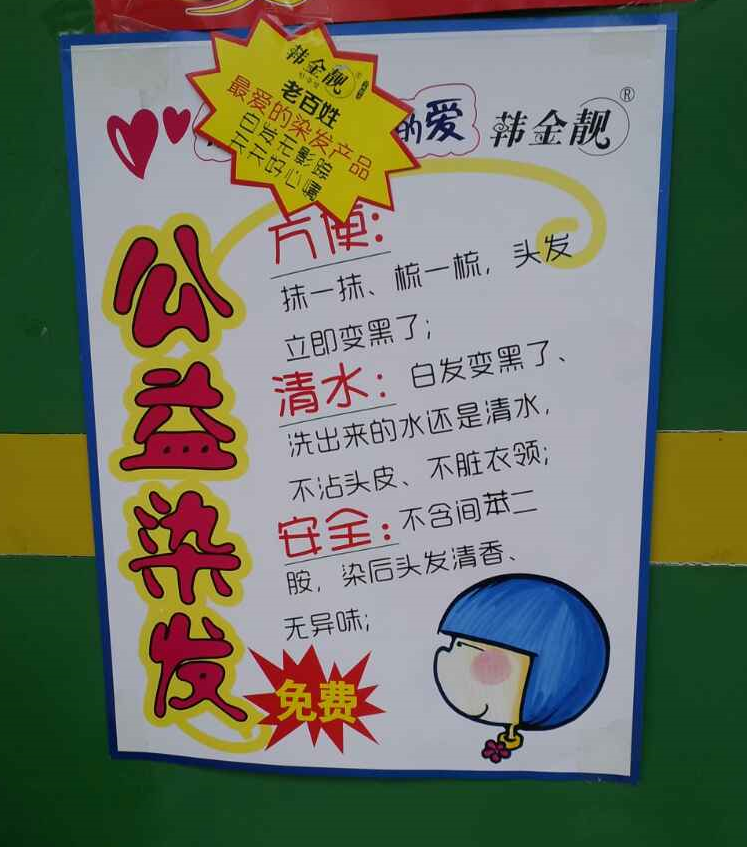 韩金靓
老百姓
最爱的染发产品
白发无影踪
天天好心情
的爱
韩金靓®
公益染发
方便：
抹一抹、梳一梳，头发
立即变黑了；
清水：白发变黑了、
洗出来的水还是清水，
不沾头皮、不脏衣领；
安全：不含间苯二
胺，染后头发清香、
无异味；
免费